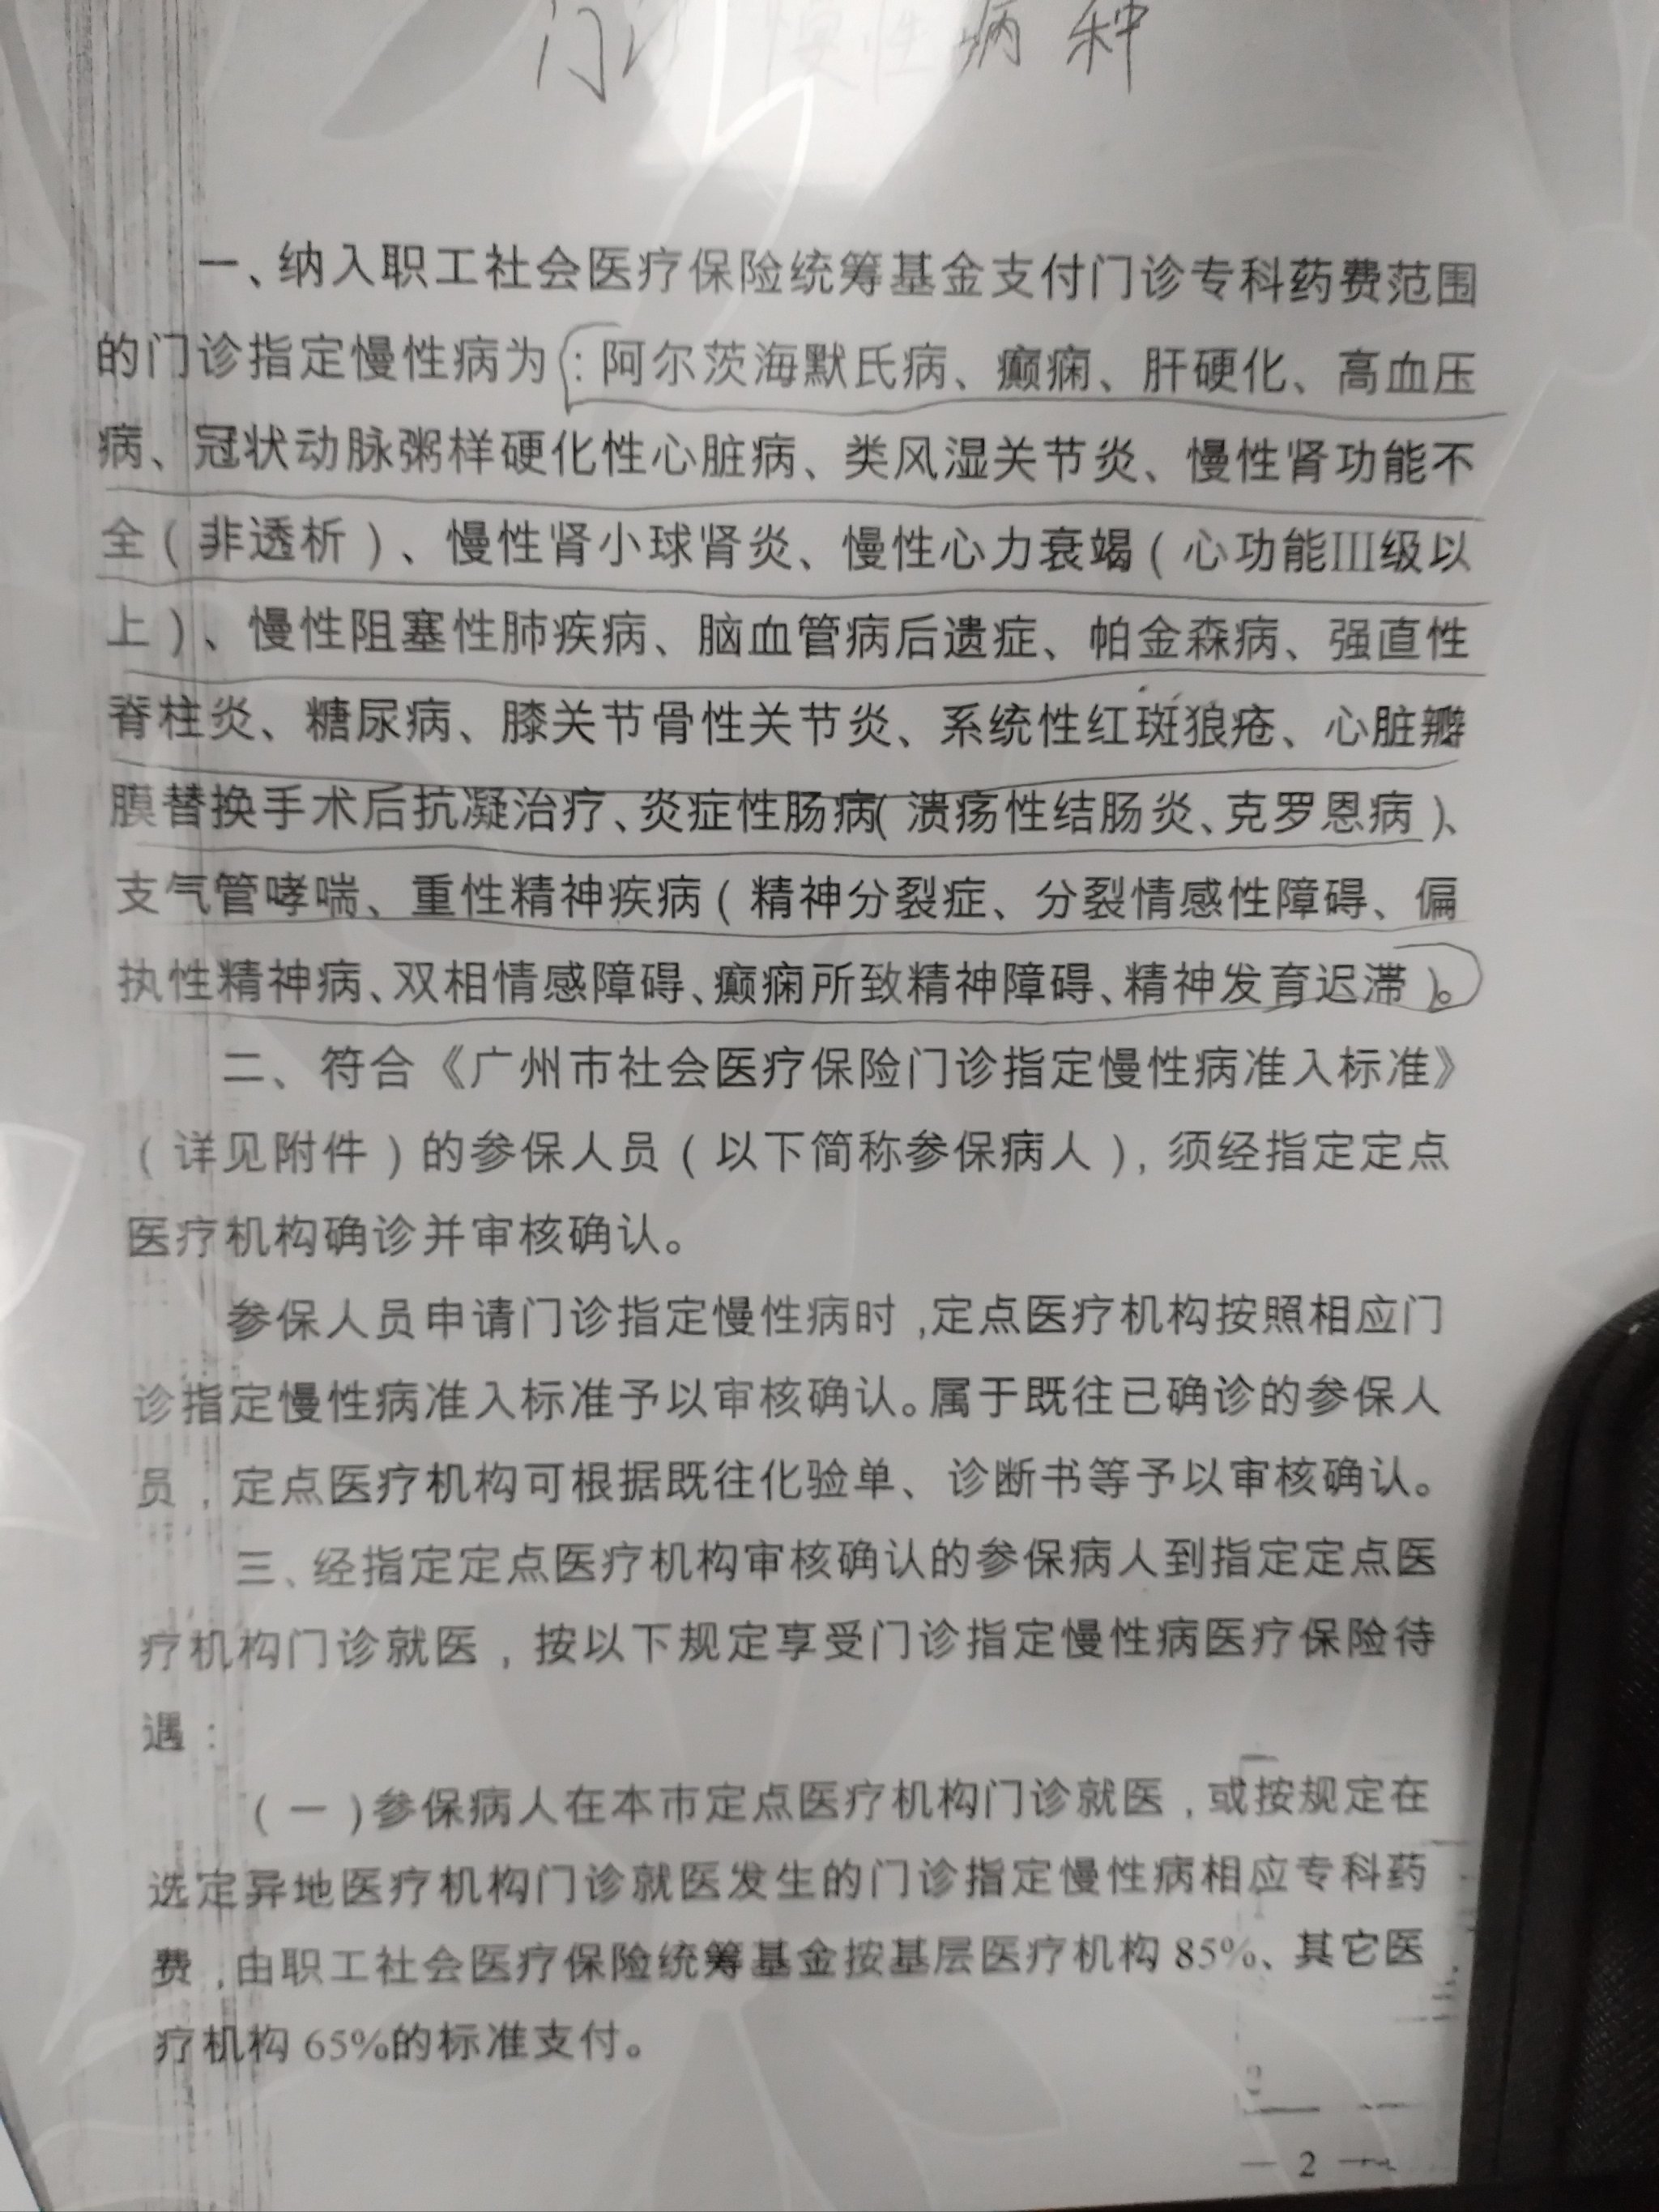 门诊慢性病种
一、纳入职工社会医疗保险统筹基金支付门诊专科药费范围
的门诊指定慢性病为：阿尔茨海默氏病、癫痫、肝硬化、高血压
病、冠状动脉粥样硬化性心脏病、类风湿关节炎、慢性肾功能不
全（非透析）、慢性肾小球肾炎、慢性心力衰竭（心功能III级以
上）、慢性阻塞性肺疾病、脑血管病后遗症、帕金森病、强直性
脊柱炎、糖尿病、膝关节骨性关节炎、系统性红斑狼疮、心脏瓣
膜替换手术后抗凝治疗、炎症性肠病（溃疡性结肠炎、克罗恩病）、
支气管哮喘、重性精神疾病（精神分裂症、分裂情感性障碍、偏
执性精神病、双相情感障碍、癫痫所致精神障碍、精神发育迟滞）。
二、符合《广州市社会医疗保险门诊指定慢性病准入标准》
（详见附件）的参保人员（以下简称参保病人），须经指定定点
医疗机构确诊并审核确认。
参保人员申请门诊指定慢性病时，定点医疗机构按照相应门
诊指定慢性病准入标准予以审核确认。属于既往已确诊的参保人
员，定点医疗机构可根据既往化验单、诊断书等予以审核确认。
三、经指定定点医疗机构审核确认的参保病人到指定定点医
疗机构门诊就医，按以下规定享受门诊指定慢性病医疗保险待
遇：
（一）参保病人在本市定点医疗机构门诊就医，或按规定在
选定异地医疗机构门诊就医发生的门诊指定慢性病相应专科药
费，由职工社会医疗保险统筹基金按基层医疗机构85%、其它医
疗机构65%的标准支付。
— 2 —